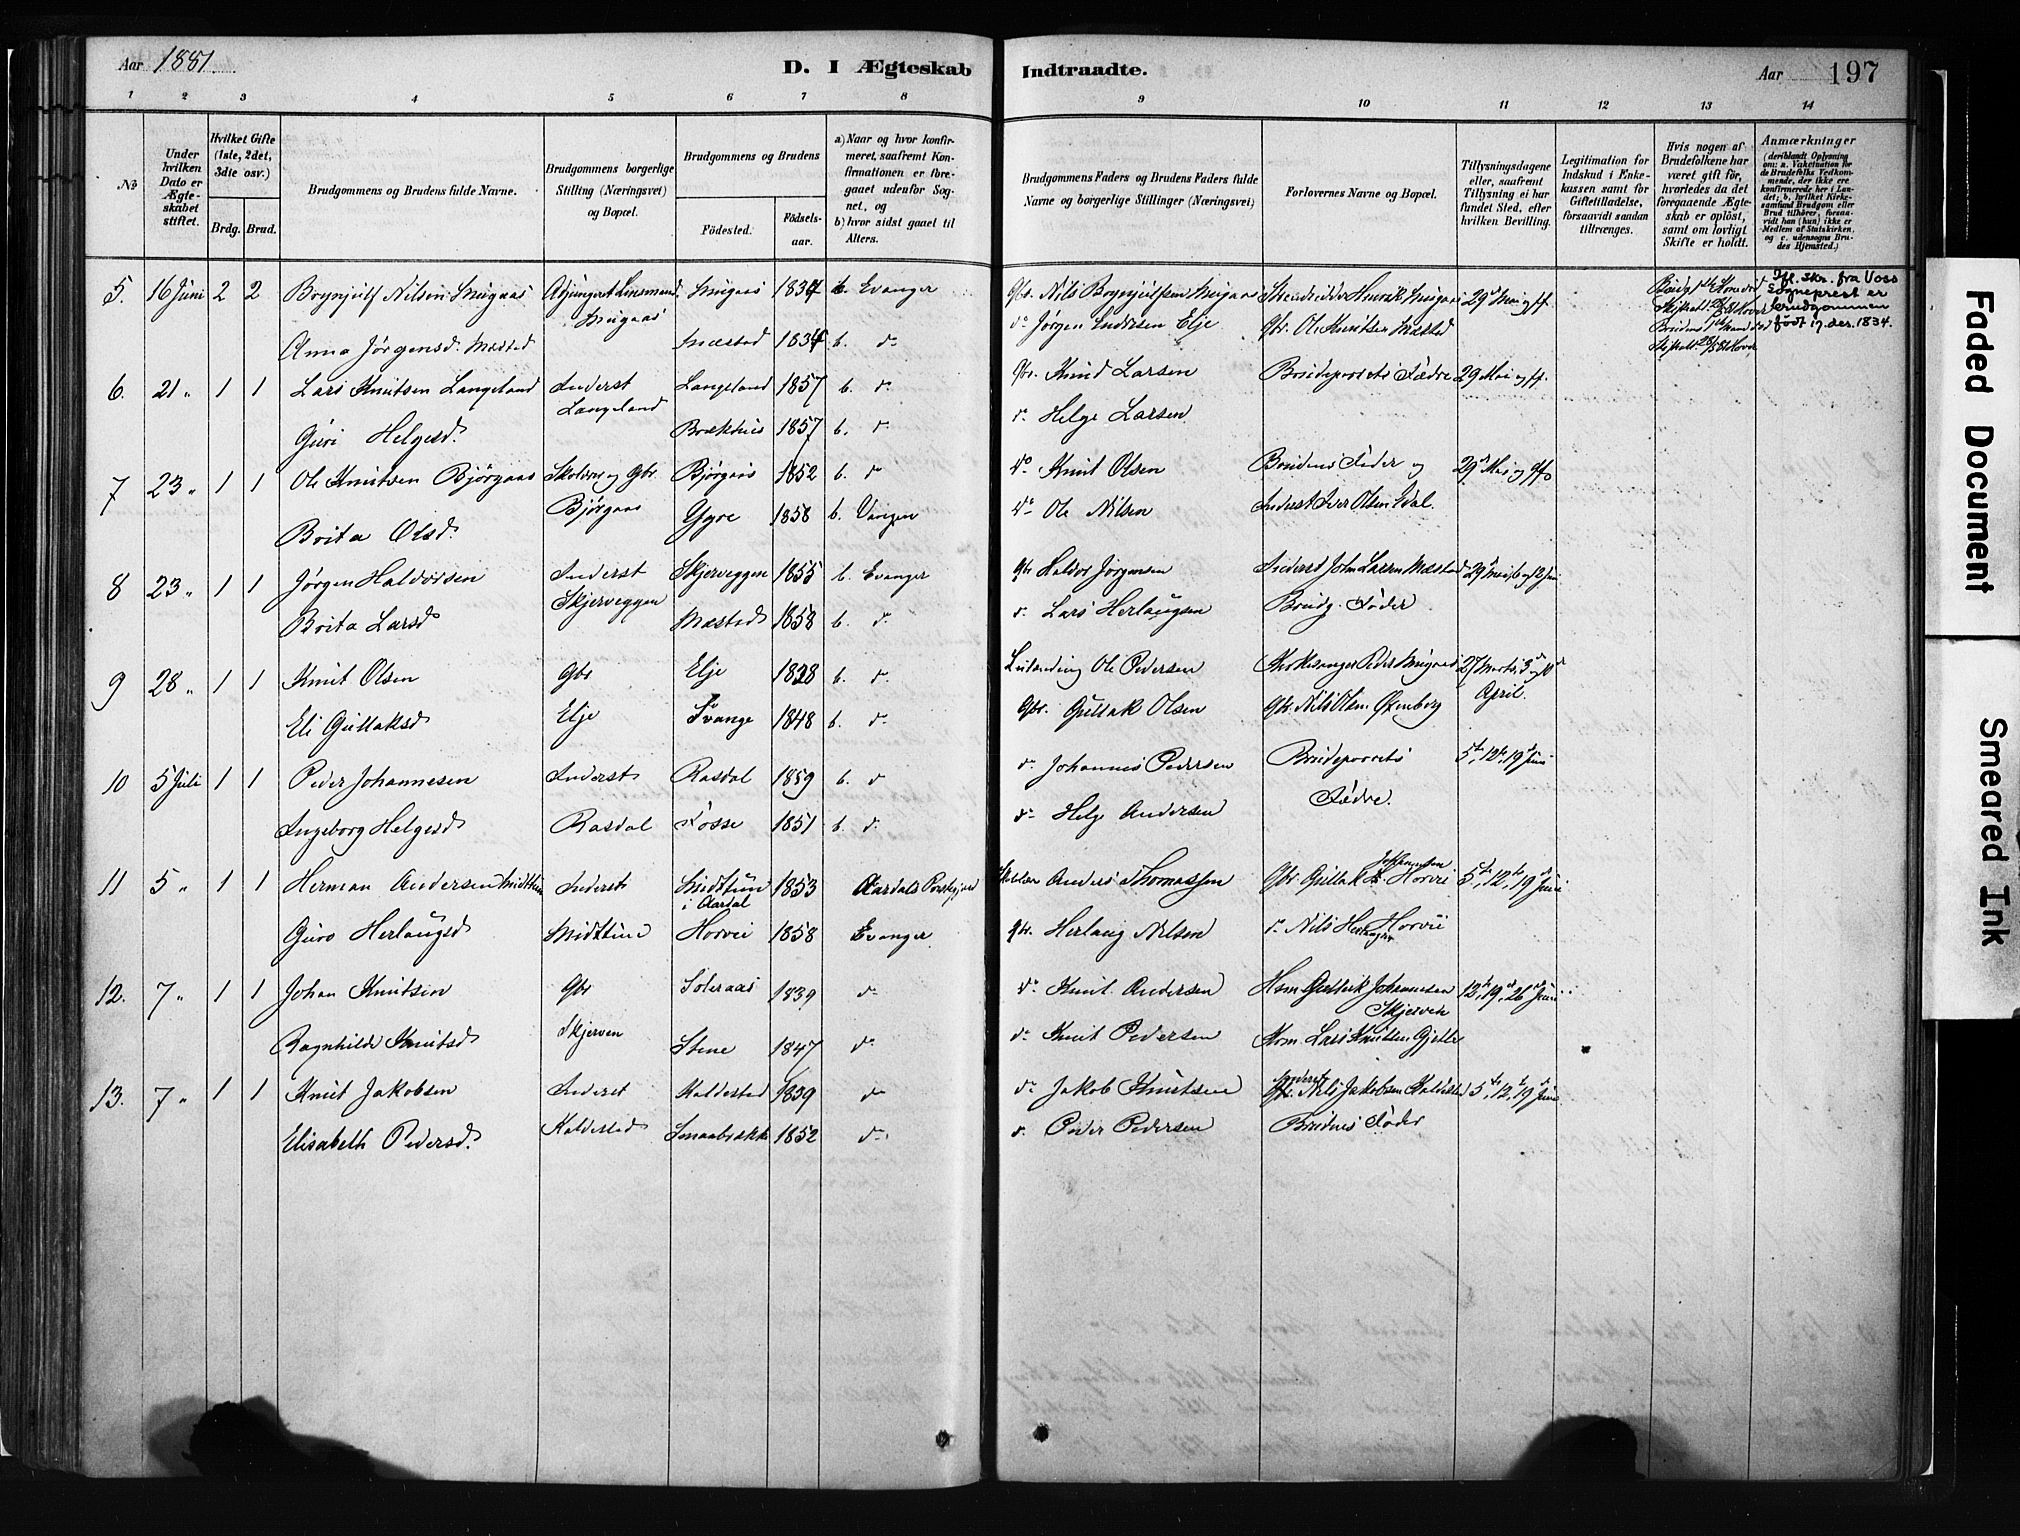 Aar 1881.
D. I Ægteskab
Indtraadte.
Aar
197
1 2 3 4 5 6 7 8 9 10 11 12 13 14
No
Under hvilken Dato er Ægteskabet stiftet.
Hvilket Gifte (1ste, 2det, 3die osv.)
Brdg. Brud.
Brudgommens og Brudens fulde Navne.
Brudgommens borgerlige Stilling (Næringsvei) og Bopæl.
Brudgommens og Brudens
Födested.
Födsels-aar.
a) Naar og hvor konfirmeret, saafremt Konfirmationen er foregaaet udenfor Sognet, og
b) hvor sidst gaaet til Alters.
Brudgommens Faders og Brudens Faders fulde Navne og borgerlige Stillinger (Næringsvei)
Forlovernes Navne og Bopæl.
Tillysningsdagene eller, saafremt Tillysning ei har fundet Sted, efter hvilken Bevilling.
Legitimation for Indskud i Enkekassen samt for Giftetilladelse, forsaavidt saadan tiltrænges.
Hvis nogen af Brudefolkene har været gift før, hvorledes da det foregaaende Ægteskab er oplöst, samt om lovligt Skifte er holdt.
Anmærkninger
(deriblandt Oplysning om: a. Vakcination for de Brudefolks Vedkommende, der ikke ere konfirmerede her i Landet; b. hvilket Kirkesamfund Brudgom eller Brud tilhörer, forsaavidt han (hun) ikke er Medlem af Statskirken, og c. udensogns Brudes Hjemsted.)
5. 16 Juni 2 2 Brynjulf Nilsen Mugaas Adjungert Lensmand Mugaas 1834 b. Evanger Gbr. Nils Brynjulfsen Mugaas Henrik Mugaas 29 Mai og ff.
Itfl. skr. fra Voss sogneprest er brudgommen født 17. des. 1834.
Mugaas
Anna Jørgensd. Mæstad Mæstad 1834 b. do do Jørgen Elje Gbr. Ole Knutsen Mæstad
6. 21 " 1 1 Lars Knutsen Langeland Inderst Langeland 1857 b. do Gbr. Knud Larsen Brudeparrets Fædre 29 Mai og ff.
Langeland
Guri Helgesd. Brækhus 1857 b. do do Helge Larsen
7 23 " 1 1 Ole Knutsen Bjørgaas Skolelr. og Gbr. Bjørgaas 1852 b. do do Knut Olsen Brudens Fader og 29 Mai og ff.
Bjørgaas
Brita Olsd. Ygre 1858 b. Vangen do Ole Nilsen Inderst Iver Olsen
8 23 " 1 1 Jørgen Haldorsen Inderst Skjerveggen 1855 b. Evanger Gbr Haldor Jørgensen Inderst John Larsen Mæstad 29 Mai
Skjerveggen
Brita Larsd Mæstad 1858 b. do do Lars Herlaugsen Brudg. Fader
9 28 " 1 1 Knut Olsen Gbr Elje 1828 b. do Ole Pedersen Kirkesanger Peder Mugaas 27 Marts, 3 og 10
April.
Eli Gullaksd Elje Fvange 1848 b. do Gbr. Gullak Olsen Gbr. Nils Olsen Øxenberg
10 5 Juli 1 1 Peder Johannesen Inderst Rasdal 1859 b. do do Johannes Pedersen Brudeparrets 5te, 12te, 19de Juni
Fædre.
Ingeborg Helgesd Rasdal Fosse 1851 b. do do Helge Andersen
11 5 " 1 1 Herman Andersen Midttun Inderst Midttun i Aardal 1853 Aardals Anders Thomassen Gbr. Gullak Johannesen Horvei 5te, 12te, 19de Juni
Guro Herlaugsd Midttun Horvei 1858 Evanger Gbr. Herlaug Nilsen do Nils Herlaugsen Horvei
12. 7 " 1 1 Johan Knutsen Gbr Soleraas 1839 do do Knut Andersen Hsm. Gullak Johannesen 12te, 19de, 26de Juni
Skjerven
Ragnhilde Knutsd Skjerven Stene 1847 do do Knut Pedersen Lars Knutsen
13. 7 " 1 1 Knut Jakobsen Inderst Kaldestad 1839 do do Jakob Knutsen Inderst Nils Jakobsen Kaldestad 5te, 12te, 19de Juni
Elisabeth Pedersd. Kaldestad Smaabrække 1852 do do Peder Pedersen Brudens Fader
Faded Document
Smeared Ink